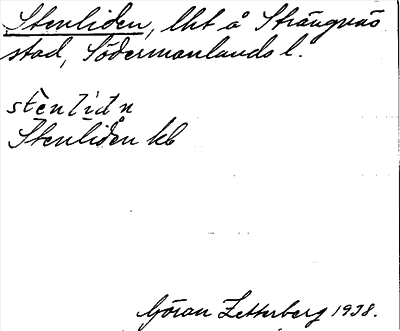 Stenliden, lht å Strängnäs
stad, Södermanlands l.
stènlìdn
Stenliden kb
Göran Zetterberg 1938.